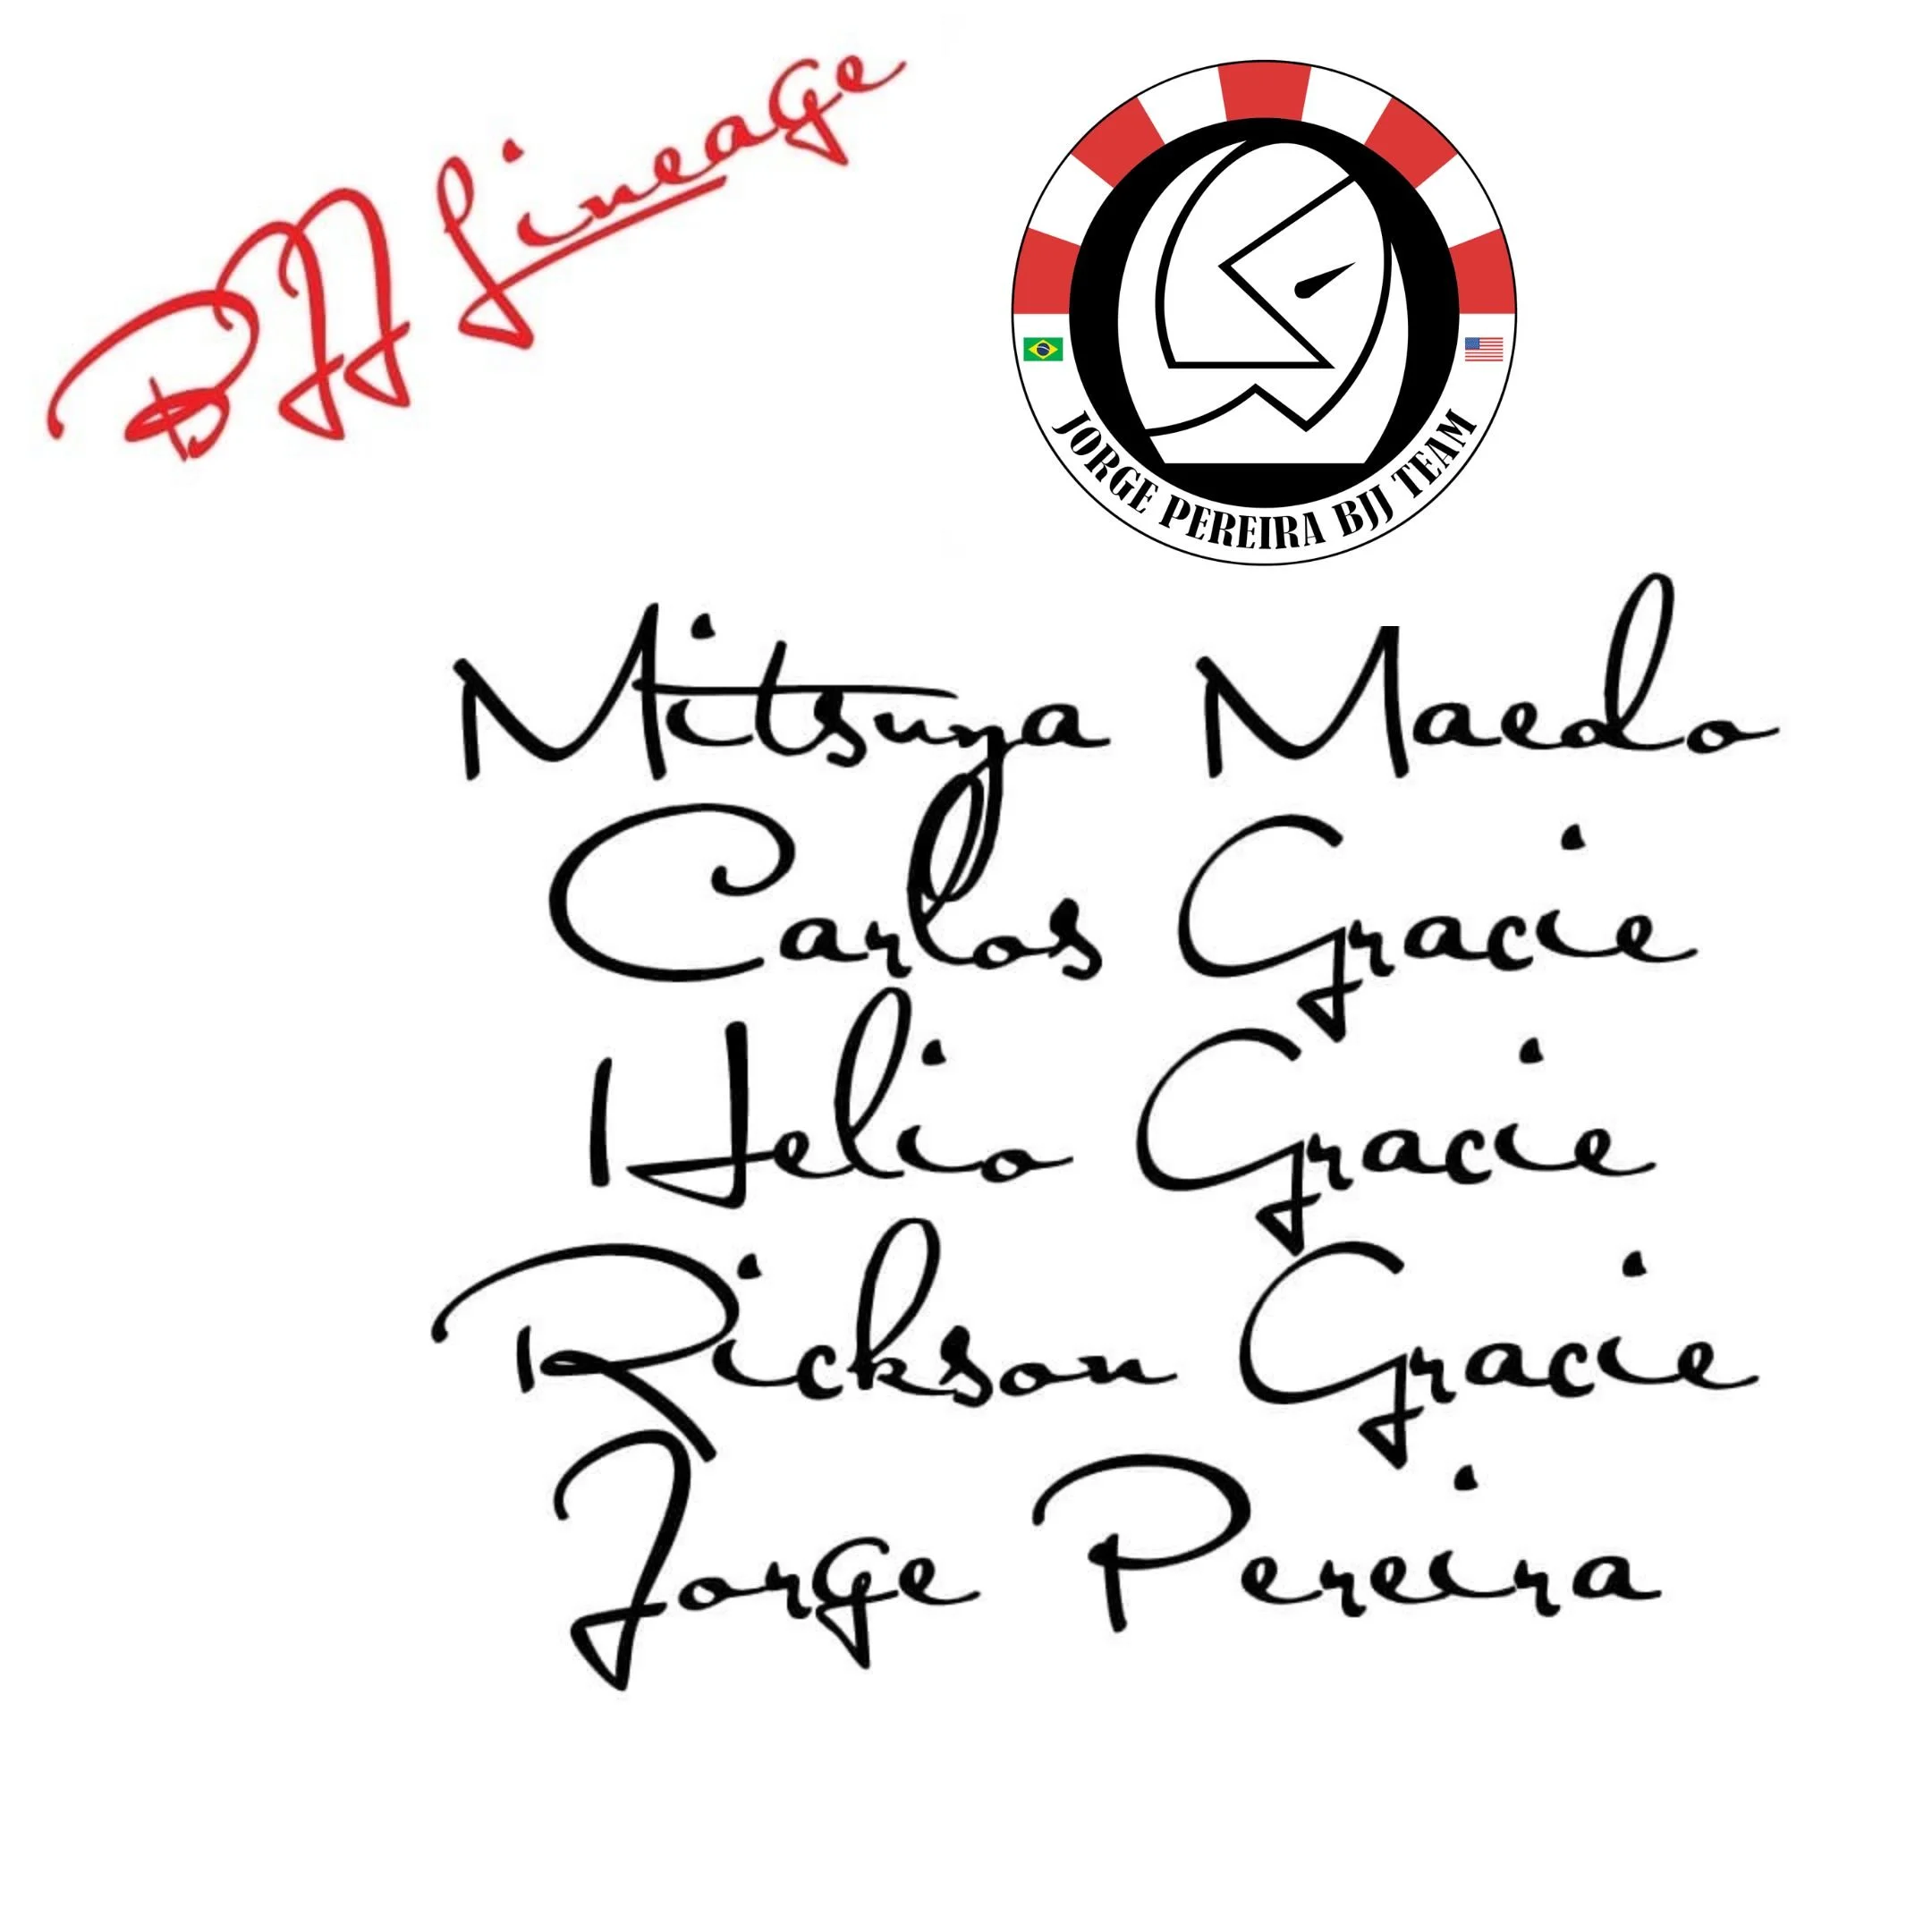 BJJ Lineage
JORGE PEREIRA BJJ TEAM
Mitsuya Maedo
Carlos Gracie
Helio Gracie
Rickson Gracie
Jorge Pereira